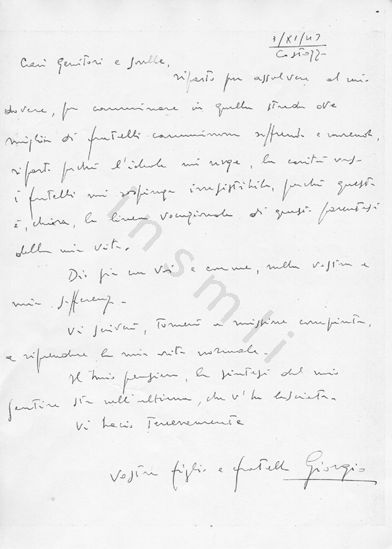 3/XI/43
Costozza
Cari Genitori e sorelle,
riparto per assolvere al mio
dovere, per camminare in quella strada ove
migliaia di fratelli camminano soffrendo e morendo,
riparto perché l'ideale mi urge, la carità verso
i fratelli mi spinge irresistibile, perché questa
è, chiara, la linea vocazionale di questa parentesi
della mia vita.
Dio sia con Voi e con me, nella vostra e
mia sofferenza.
Vi scriverò, tornerò a missione compiuta,
a riprendere la mia vita normale.
Il mio pensiero, la sintesi del mio
sentire sta nell'ultima, che v'ho lasciata.
Vi bacio teneramente
Vostro figlio e fratello Giorgio
insmli